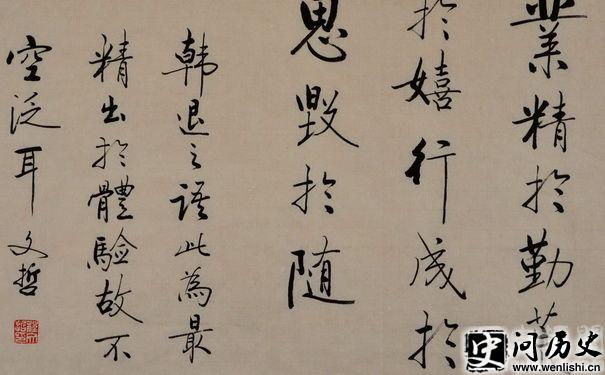 業精於勤荒
於嬉行成於
思毀於随
韓退之語此為最
精出於體驗故不
空泛耳 文哲
史 问历史
www.wenlishi.cn